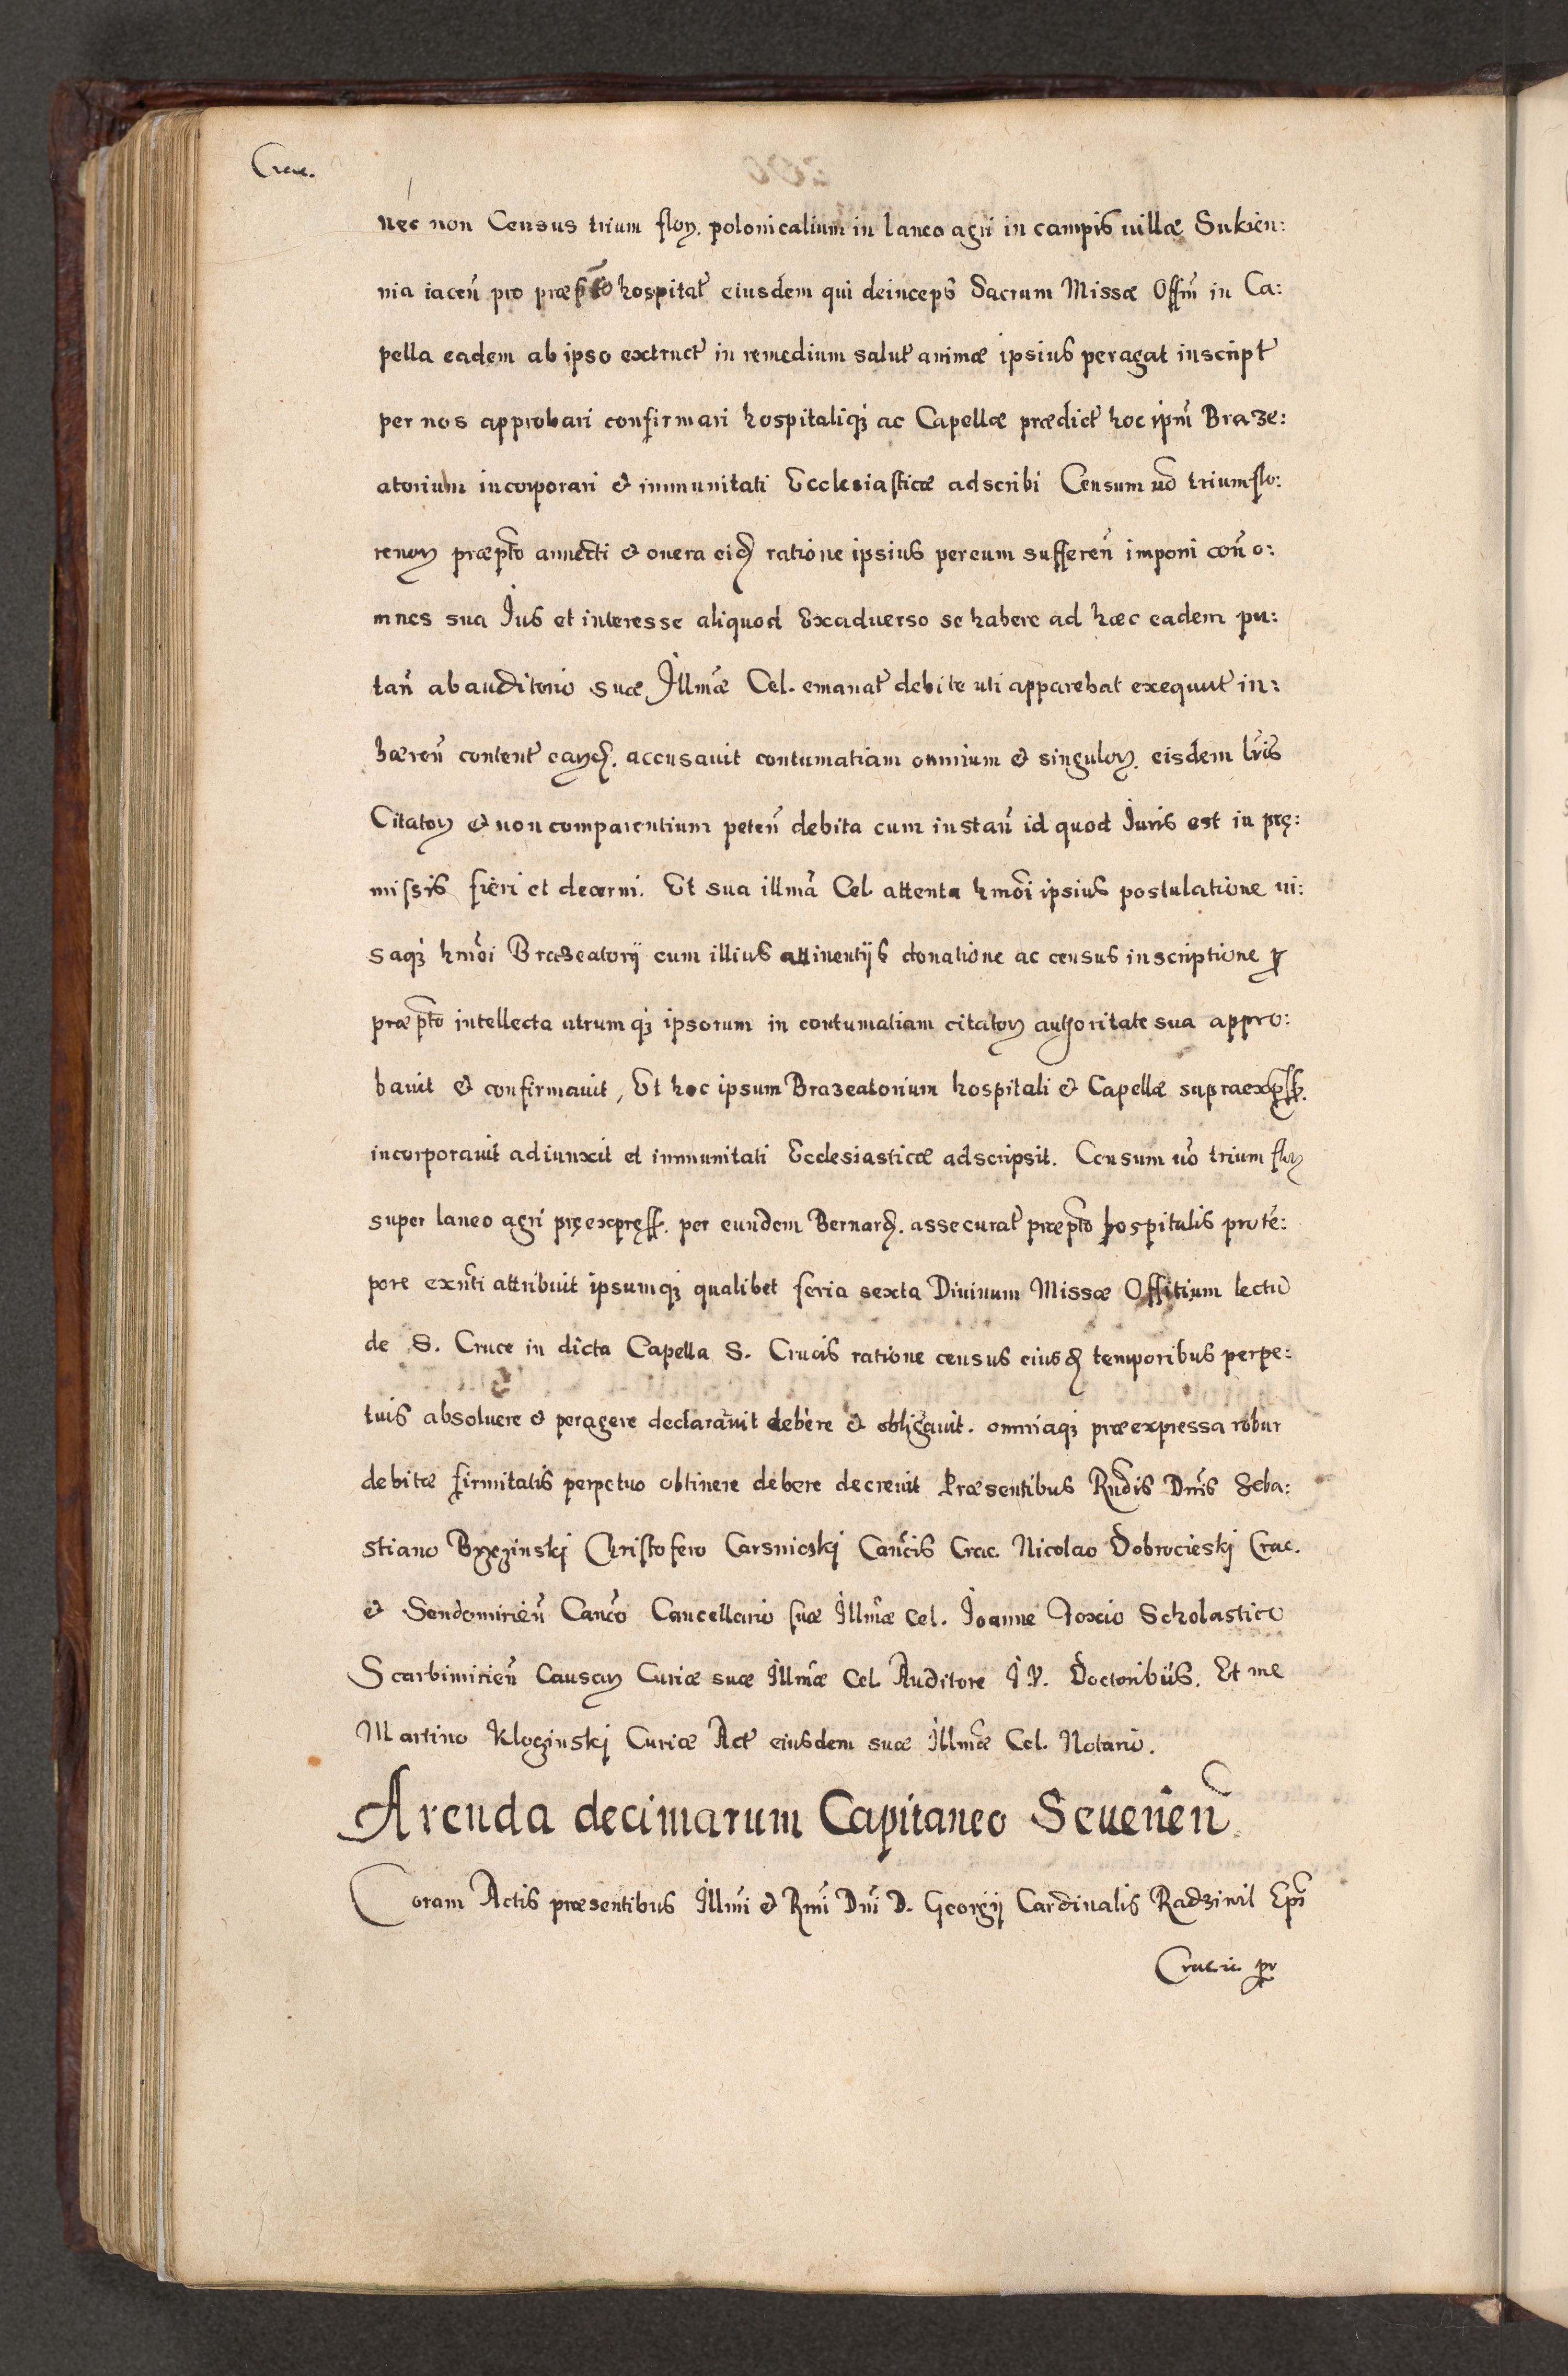 Crac.
nec non Census trium floꝝ. polonicalium in laneo agri in campis uillæ Sukien:
nia iaceñ pro præpto hospitał eiusdem qui deinceps Sacrum Missæ Offm̃ in Ca:
pella eadem ab ipso extruct̃ in remedium salut̃ animæ ipsius peragat inscript̃
per nos approbari confirmari hospitaliqꝫ ac Capellæ prædict̃ hoc ipm̃ Braze:
atorium incorporari & immunitati Ecclesiasticæ adscribi Censum uo triumflo:
renoꝝ præpto annecti & onera eid ratione ipsius pereum suffereñ imponi coñ o:
mnes sua Ius et interesse aliquod Exaduerso se habere ad hæc eadem pu:
tañ ab auditorio suæ Illmæ Cel. emanat̃ debite uti apparebat exequut̃ in:
hæreñ content̃ eaꝝd. accusauit contumatiam omnium & singuloꝝ. eisdem lris
Citatoꝝ & non comparentium peteñ debita cum instañ id quod Iuris est in pre:
missis fieri et decerni. Et sua illma Cel attenta hmoi ipsius postulatione ui:
saqꝫ hmoi Brazeatorij cum illius attinentijs donatione ac census inscriptione ꝓ
præpto intellecta utrumqꝫ ipsorum in contumatiam citatoꝝ authoritate sua appro:
bauit & confirmauit, Et hoc ipsum Brazeatorium hospitali & Capellæ supraexpss.
incorporauit adiunxit et immunitati Ecclesiasticæ adscripsit. Censum uo trium floꝝ
super laneo agri preexpress. per eundem Bernard. assecurat̃ præpto hospitalis pro tẽ:
pore exñti attribuit ipsumqꝫ qualibet feria sexta Diuinum Missæ Offitium lectũ
de S. Cruce in dicta Capella S. Crucis ratione census eiusd temporibus perpe:
tuis absoluere & peragere declarauit debere & obligauit. omniaqꝫ præexpressa robur
debitæ firmitatis perpetuo obtinere debere decreuit Præsentibus Rndis Dnis Seba:
stiano Brzezinskj Christofero Carsnickj Cancis Crac. Nicolao Dobrocieskj Crac.
& Sendomirieñ Canco Cancellario suæ Illmæ Cel. Ioanne Foxio Scholastico
Scarbimirieñ Causaꝝ Curiæ suæ Illmæ Cel Auditore I.V. Doctoribus. Et me
Martino Kloczinskj Curiæ Act̃ eiusdem suæ Illmæ Cel. Notario.
Arenda decimarum Capitaneo Seuerieñ
Coram Actis præsentibus Illmi & Rmi Dni D. Georgij Cardinalis Radziwil Epi